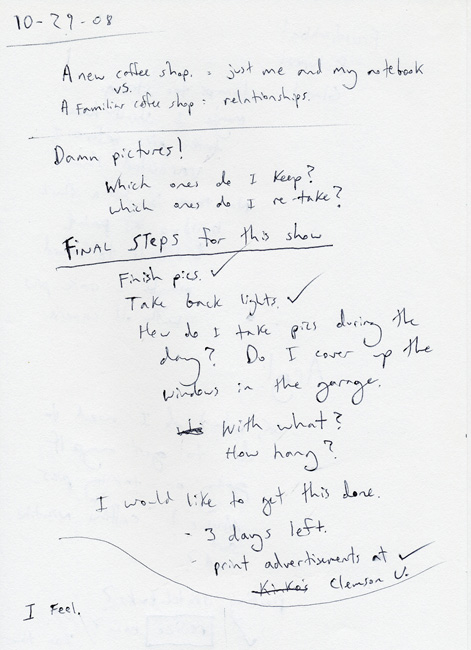 10-29-08
A new coffee shop. = just me and my notebook
vs.
A familiar coffee shop = relationships.
Damn pictures!
Which ones do I keep?
Which ones do I re-take?
FINAL STEPS for this show
Finish pics. ✓
Take back lights. ✓
How do I take pics during the
day? Do I cover up the
windows in the garage.
With what?
How hang?
I would like to get this done.
- 3 days left.
- print advertisements at ✓
Kinko's Clemson U.
I Feel.